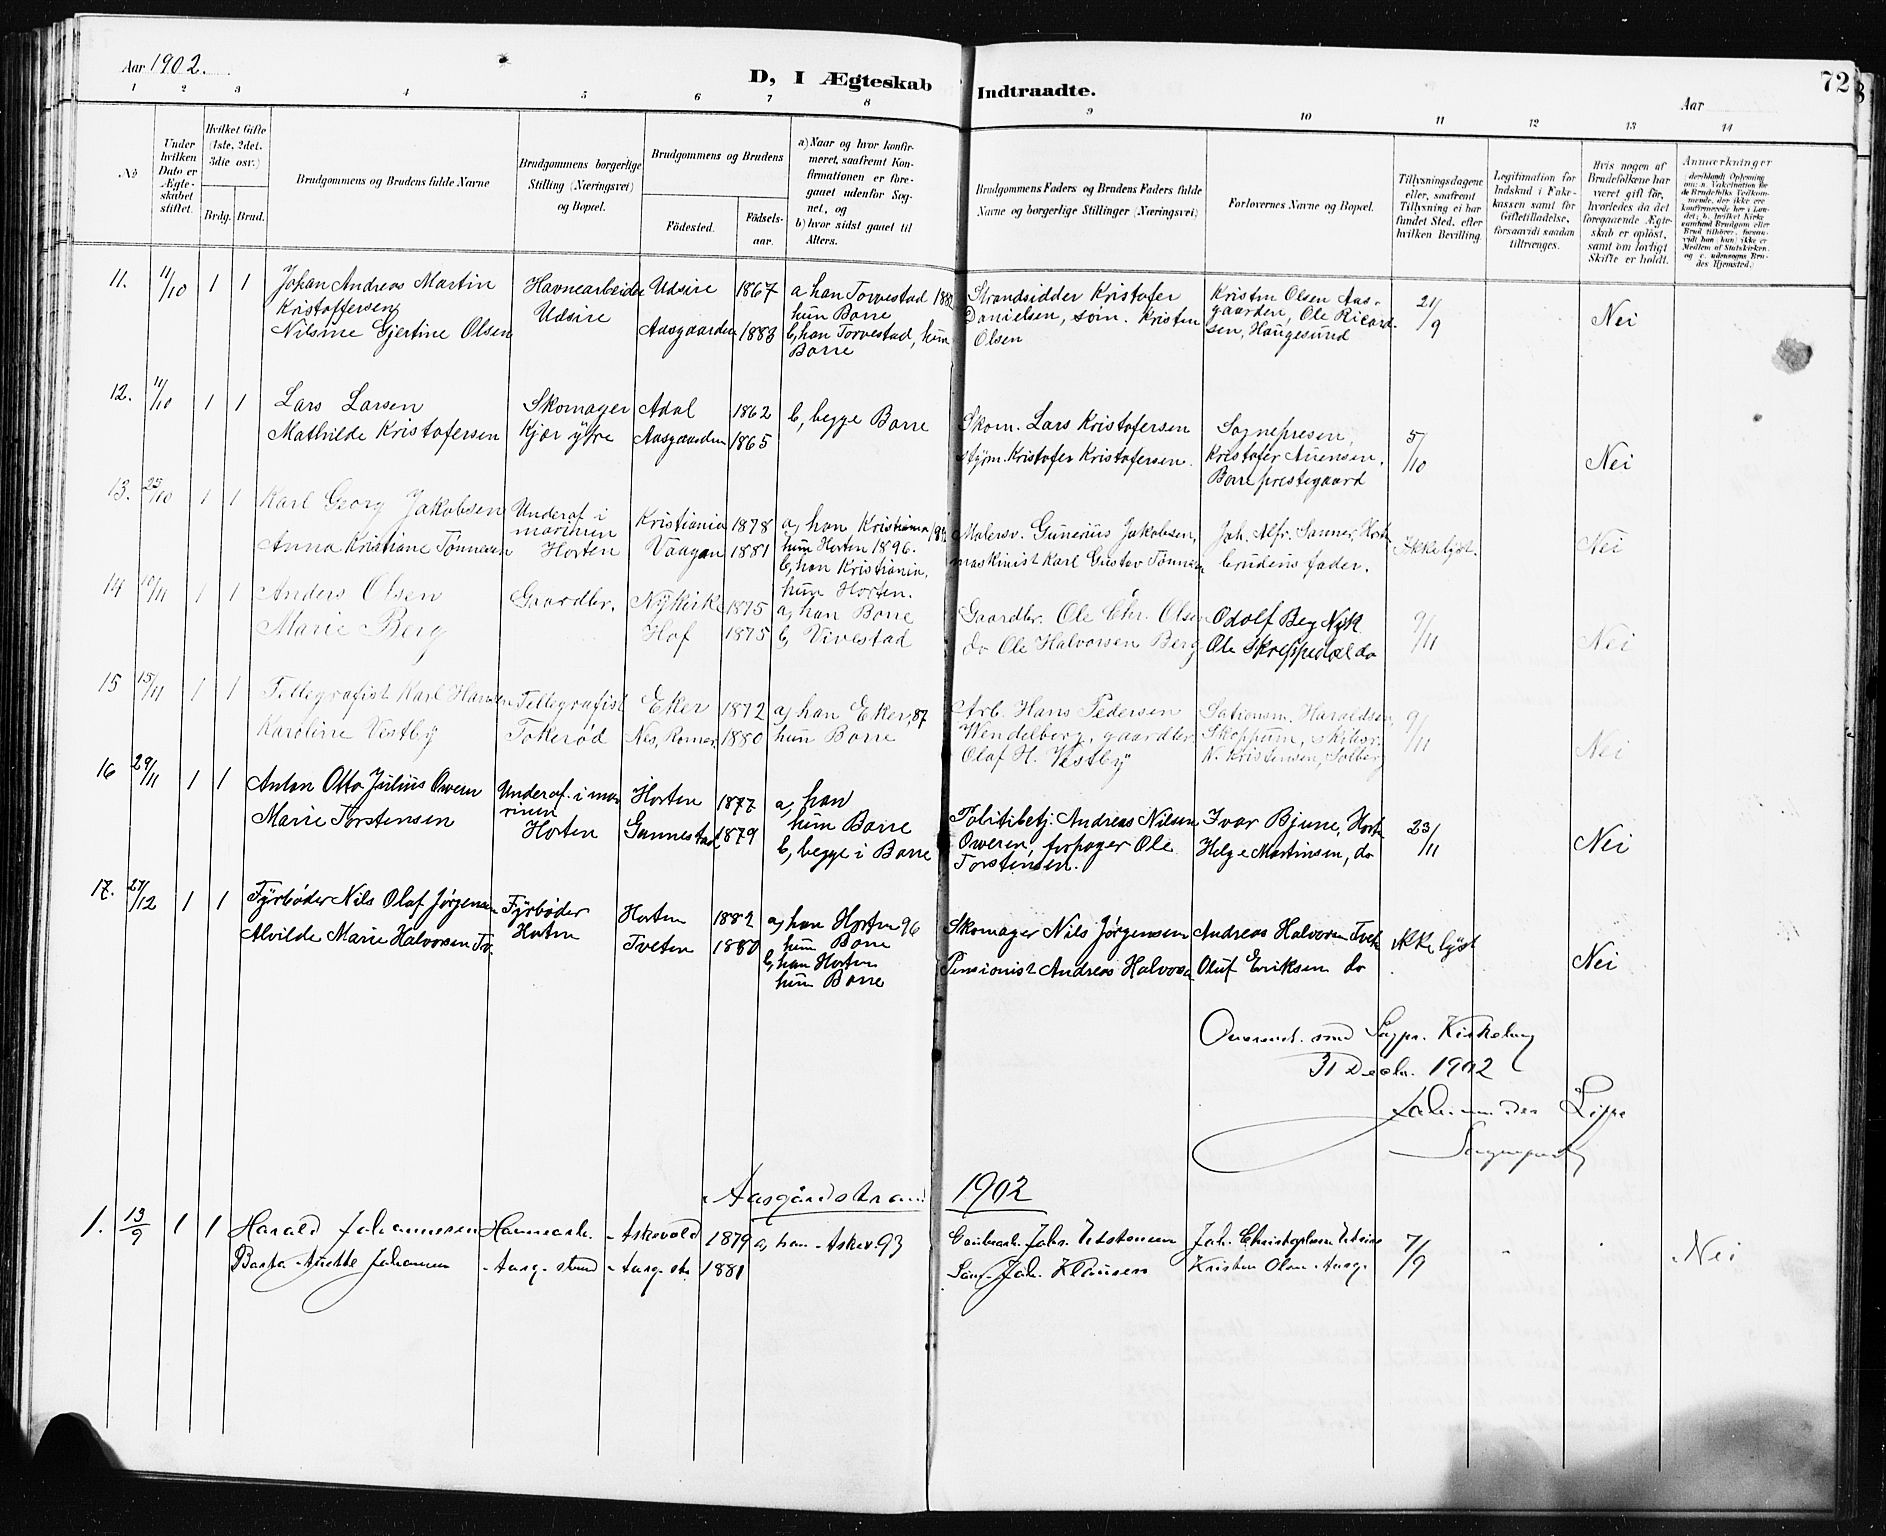 Aar 1902.
D, I Ægteskab Indtraadte.
72
Aar
1 2 3 4 5 6 7 8 9 10 11 12 13 14
No
Under hvilken Dato er Ægteskabet stiftet.
Hvilket Gifte (1ste, 2det, 3die osv.)
Brdg. Brud.
Brudgommens og Brudens fulde Navne
Brudgommens borgerlige Stilling (Næringsvei) og Bopæl.
Brudgommens og Brudens
Födested.
Födselsaar.
a) Naar og hvor konfirmeret, saafremt Konfirmationen er foregaaet udenfor Sognet, og
b) hvor sidst gaaet til Alters.
Brudgommens Faders og Brudens Faders fulde Navne og borgerlige Stillinger (Næringsvei)
Forlovernes Navne og Bopæl.
Tillysningsdagene eller, saafremt Tillysning ei har fundet Sted, efter hvilken Bevilling.
Legitimation for Indskud i Enkekassen samt for Giftetilladelse, forsaavidt saadan tiltrænges.
Hvis nogen af Brudefolkene har været gift för, hvorledes da det foregaaende Ægteskab er oplöst, samt om lovligt Skifte er holdt.
Anmærkninger
11. 11/10 1 1
Johan Andreas Martin
Kristoffersen
Nilsine Gjertine Olsen
Havnearbeider
Udsire
Udsire 1867
Aasgaarden 1883
a han Torvestad 1882
hun Borre
b, han Torvestad, hun
Borre
Strandsidder Kristofer
Danielsen, søm. Kristen
Olsen
Kristen Olsen Aas-
gaarden, Ole Ricard-
sen, Haugesund
21/9
Nei
12. 11/10 1 1
Lars Larsen
Mathilde Kristofersen
Skomager
Kjær ytre
Adal 1862
Aasgaarden 1865
b, begge Borre
Skom. Lars Kristofersen
styrm. Kristofer Kristofersen.
Kristofer
Borre prestegaard
5/10
Nei
13. 25/10 1 1
Karl Georg Jakobsen
Anna Kristiane Tønnesen
Underof. i
marinen
Horten
Kristiania 1878
Vaagan 1881
a, han Kristiania
hun Horten 1896.
b, han Kristiania,
hun Horten.
Malersv. Gunerius Jakobsen,
maskinist Karl Gustav Tønnesen
Joh. Alfr. Sanner, Horten
brudens fader.
Ikke lyst.
Nei
14 1 1
Anders Olsen
Marie Berg
Gaardbr.
Nykirke 1875
Hof 1875
a, han Borre
b, Vivestad
Gaardbr. Ole Chr. Olsen
do Ole Halvorsen Berg
Odolf Berg Nyk
Ole Skreppedal do
9/11
Nei
15 15/11 1 1
Tellegrafist Karl Hansen
Karoline Vestby
Tellegrafist
Tokerød
Eker 1872
Nes, Romer. 1880
a, han Eker, 87
hun Borre
Arb. Hans Pedersen
Wendelborg, gaardbr.
Olaf H. Vestby
Haraldsen,
Skoppum,
N. Kristensen, Solberg
9/11
Nei
16 29/11 1 1
Anton Otto Julius Oweren
Marie Torstensen
Underof. i ma-
rinen
Horten
Horten 1877
Gannestad 1879
a, han
hun Borre
b, begge i Borre
Politibetj. Andreas Nilsen
Oweren, forpagter Ole
Torstensen.
Ivar Bjune, Horten
Helge Martinsen, do
23/11
Nei
17. 27/12 1 1
Fyrbøder Nils Olaf Jørgensen
Alvilde Marie Halvorsen Tv.
Fyrbøder
Horten
Horten 1882
Tveten 1880
a, han Horten 96
hun Borre
b, han Horten
hun Borre
Skomager Nils Jørgensen
Pensionist Andreas Halvorsen
Andreas Halvorsen Tvet
Oluf Eriksen do
ikke lyst
Nei
Overenst. med Sogpr. Kirkebog
31 Decbr. 1902
Sognepræst
Aasgårdstrand 1902
1. 13/9 1 1
Harald Johannesen
Johansen
Askevold 1879
Aasg. str. 1881
a, han Askev. 93
Joh. Klausen
Kristen Olsen Aasg.
7/9
Nei